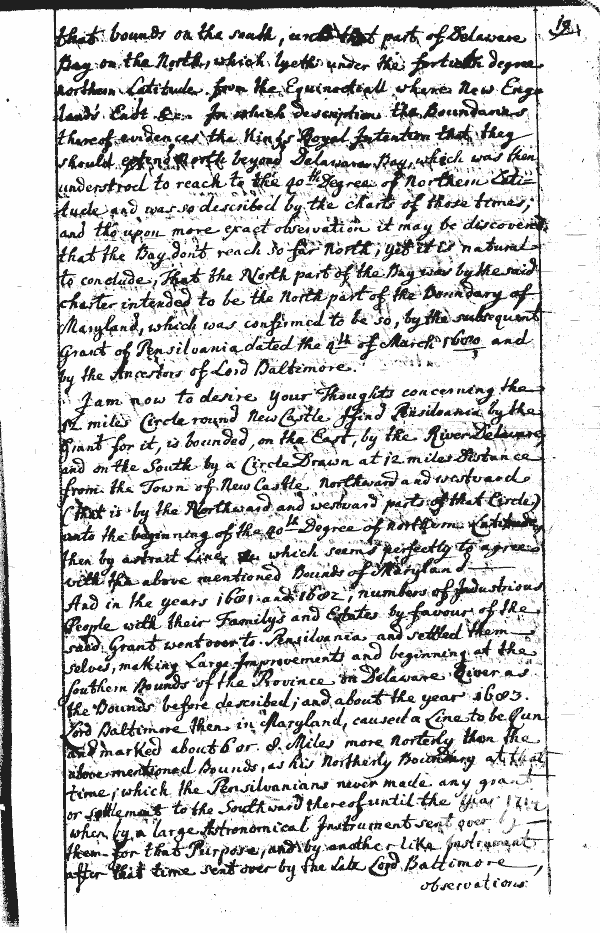 19
that bounds on the south, unto that part of Delaware
Bay on the North, which lyeth under the fortieth degree
northern Latitude from the Equinoctiall where New Eng-
lands East &c:- In which description the Boundarys
thereof evidences the Kings Royal Intention that they
should extend North beyond Delaware Bay, which was then
understood to reach to the 40th Degree of Northern Lati-
tude and was so described by the charts of those times;
and tho upon more exact observation it may be discovered
that the Bay don't reach so far North; yet it is natural
to conclude, That the North part of the Bay was by the said
charter intended to be the North part of the Boundary of
Maryland, which was confirmed to be so, by the subsequent
Grant of Pensilvania dated the 4th of March 1680, and
by the Ancestors of Lord Baltimore.
I am now to desire your Thoughts concerning the
12 miles Circle round New Castle I find Pensilvania by the
Grant for it, is bounded, on the East, by the River Delaware
and on the South by a Circle Drawn at 12 miles Distance
from the Town of New Castle northward and westward
(that is by the Northward and westward parts of that Circle)
unto the beginning of the 40th Degree of northern Latitude,
then by a strait Line, which seems perfectly to agree
with the above mentioned Bounds of Maryland
And in the years 1681 and 1682, numbers of Industrious
People with their Familys and Estates by favour of the
said Grant went over to Pensilvania and settled them-
selves, making Large Improvements and beginning at the
southern Bounds of the Province on Delaware River as
the Bounds before described; and about the year 1683.
Lord Baltimore then in Maryland, caused a Line to be Run
and marked about 6 or 8 Miles more norterly than the
above mentioned Bounds, as his Northerly Boundary at that
time; which the Pensilvanians never made any grant
or settlement to the Southward thereof until the year
when by a large Astronomical Instrument sent over by
them for that Purpose, and by another like Instrument
after that time sent over by the Late Lord Baltimore,
observations